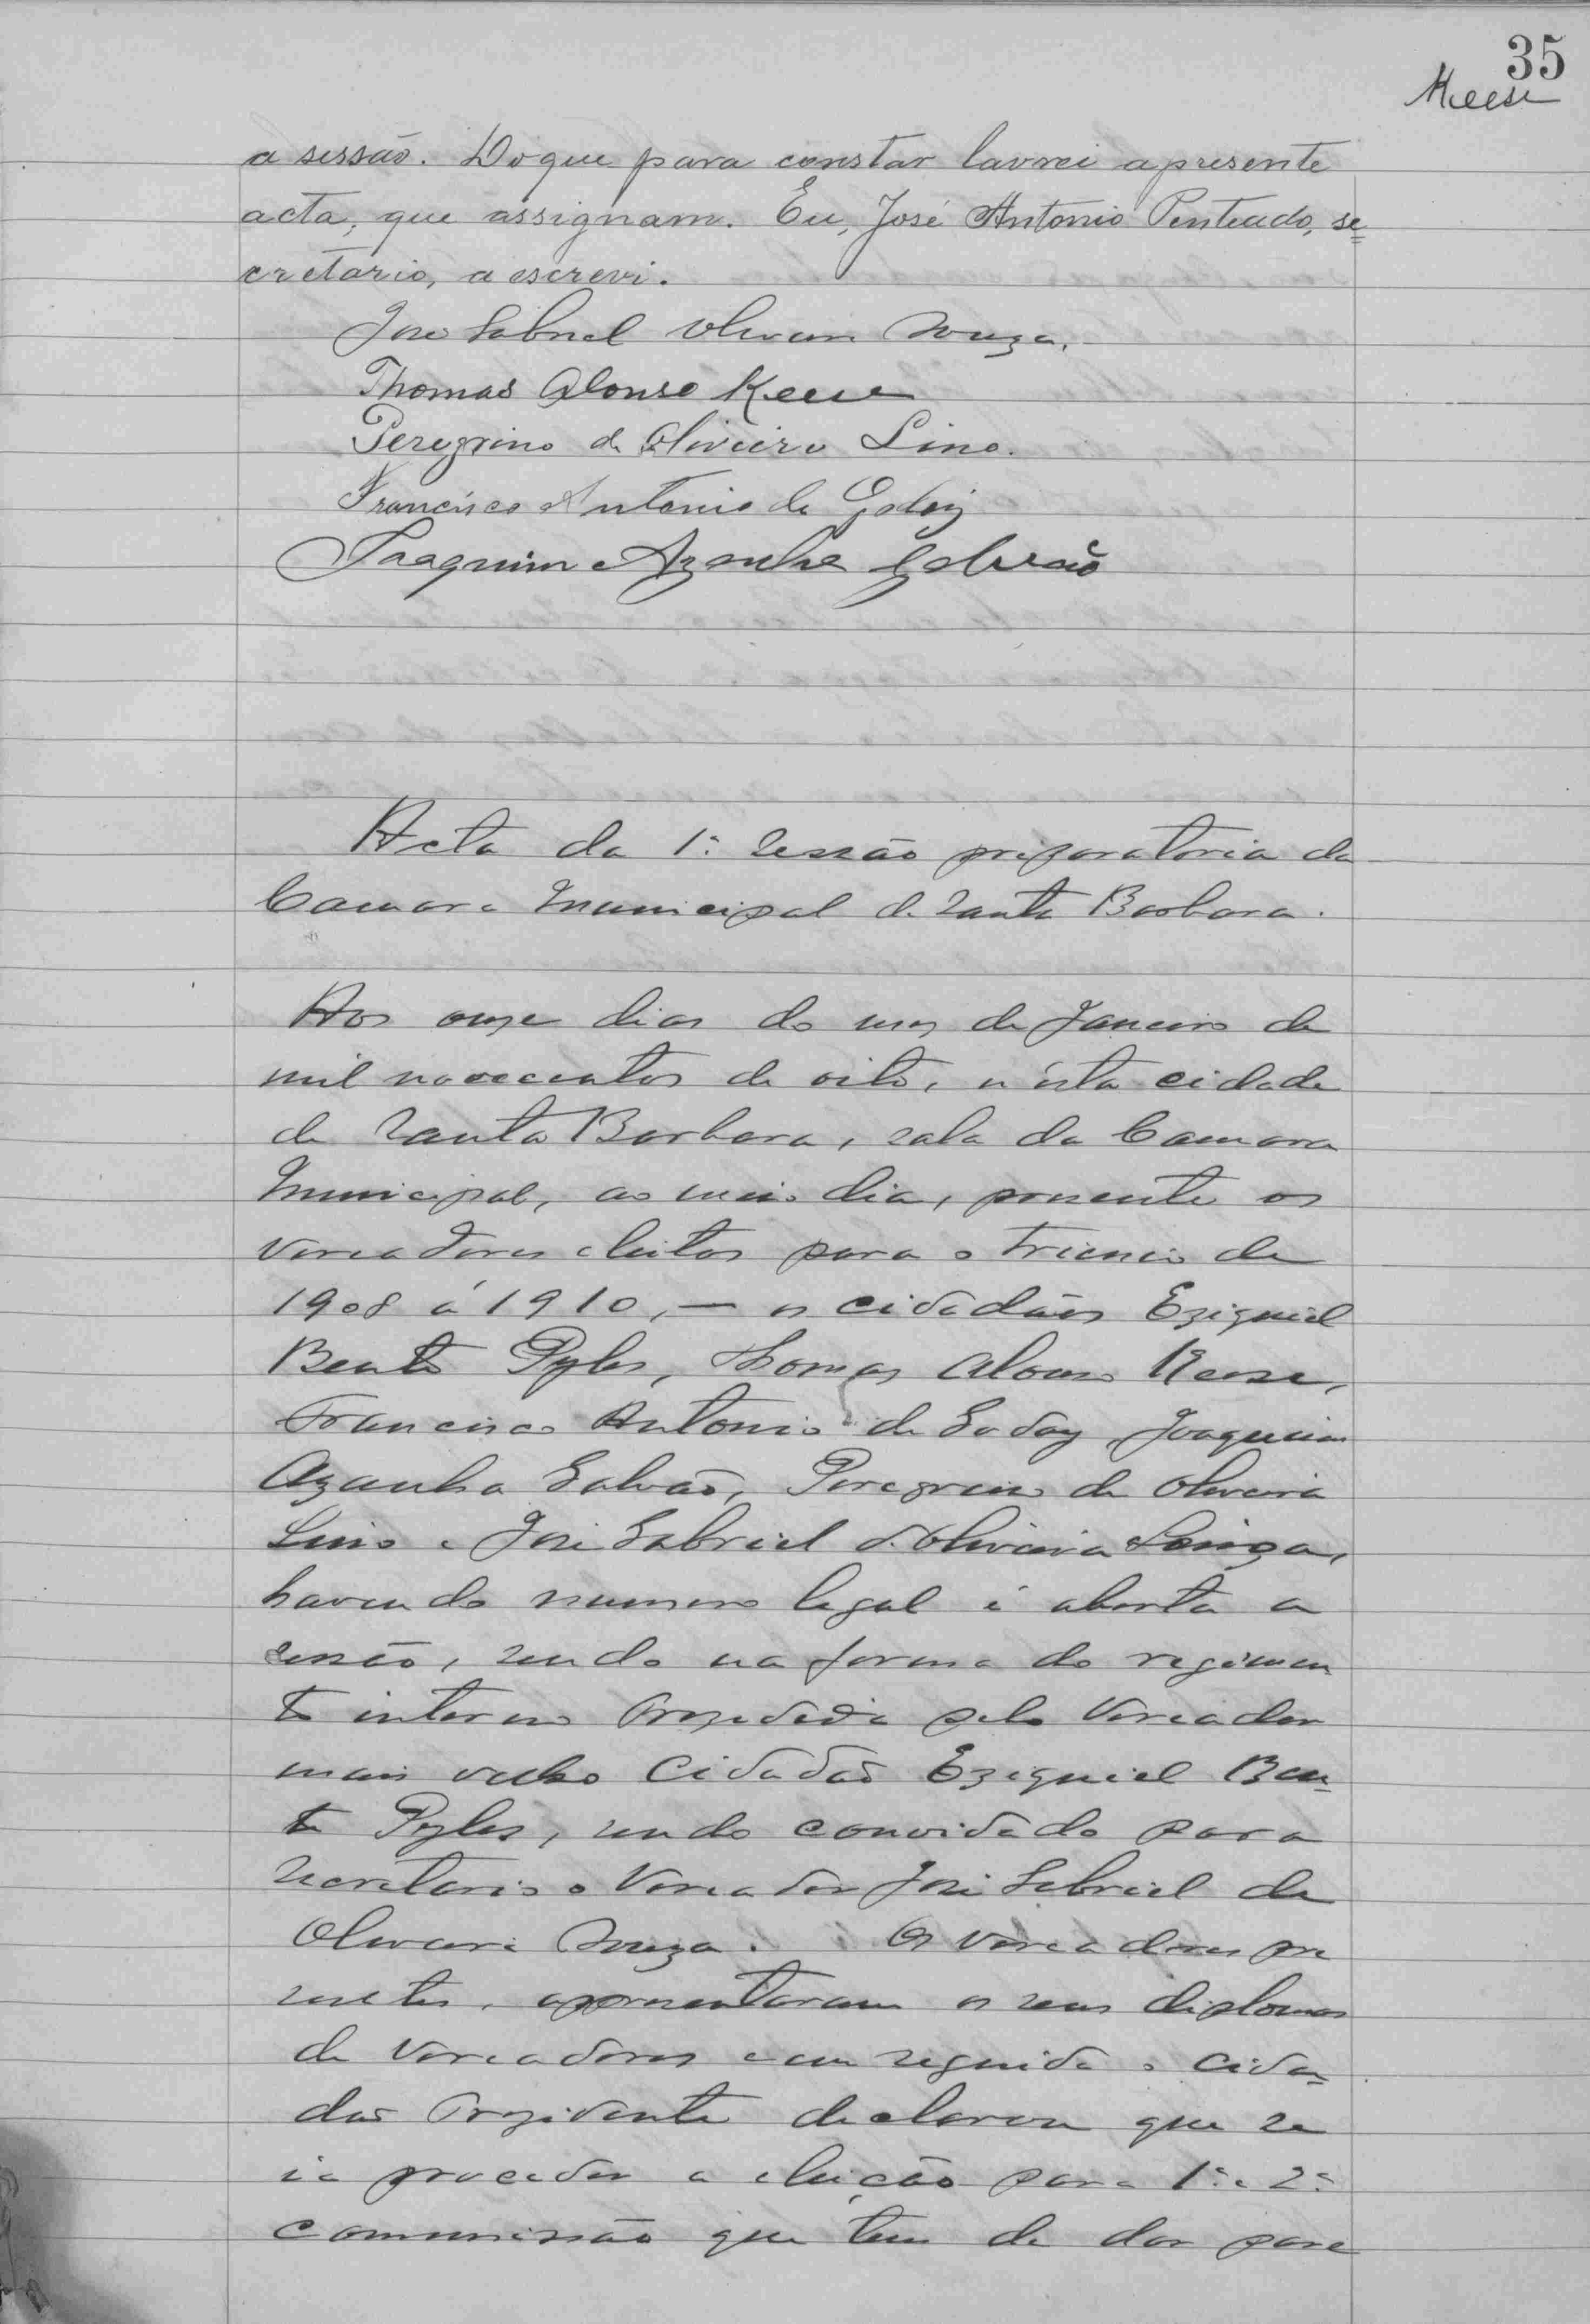 35
Keese
a sessão. Do que para constar lavrei a presente
acta, que assignam. Eu, José Antonio Penteado, se=
cretario, a escrevi.
José Gabriel Oliveira Souza.
Thomas Alonso Keese
Peregrino de Oliveira Lino.
Francisco Antonio de Godoy
Joaquim Azanha Galvão
Acta da 1ª sessão preparatoria da
Camara Municipal de Santa Barbara.
Aos onze dias do mez de Janeiro de
mil novecentos de oito, n'esta cidade
de Santa Barbara, sala da Camara
Municipal, ao meio dia, presente os
Vereadores eleitos para o trienio de
1908 á 1910, — os cidadãos Eziquiel
Bento Pyles, Thomas Alonso Keese,
Francisco Antonio de Godoy, Joaquim
Azanha Galvão, Peregrino de Oliveira
Lino e José Gabriel d'Oliveira Souza,
havendo numero legal é aberta a
sessão, sendo na forma do regimen
to interno prezedida pelo Vereador
mais velho Cidadão Eziquiel Ben=
to Pyles, sendo convidado para
secretario o Vereador José Gabriel de
Oliveira Souza. Os vereadores pre
sentes, apresentaram os seus diplomas
de Vereadores e em seguida o cida=
dão Prezidente declarou que se
ia proceder a eleição para 1ª e 2ª
commissão que tem de dar pare